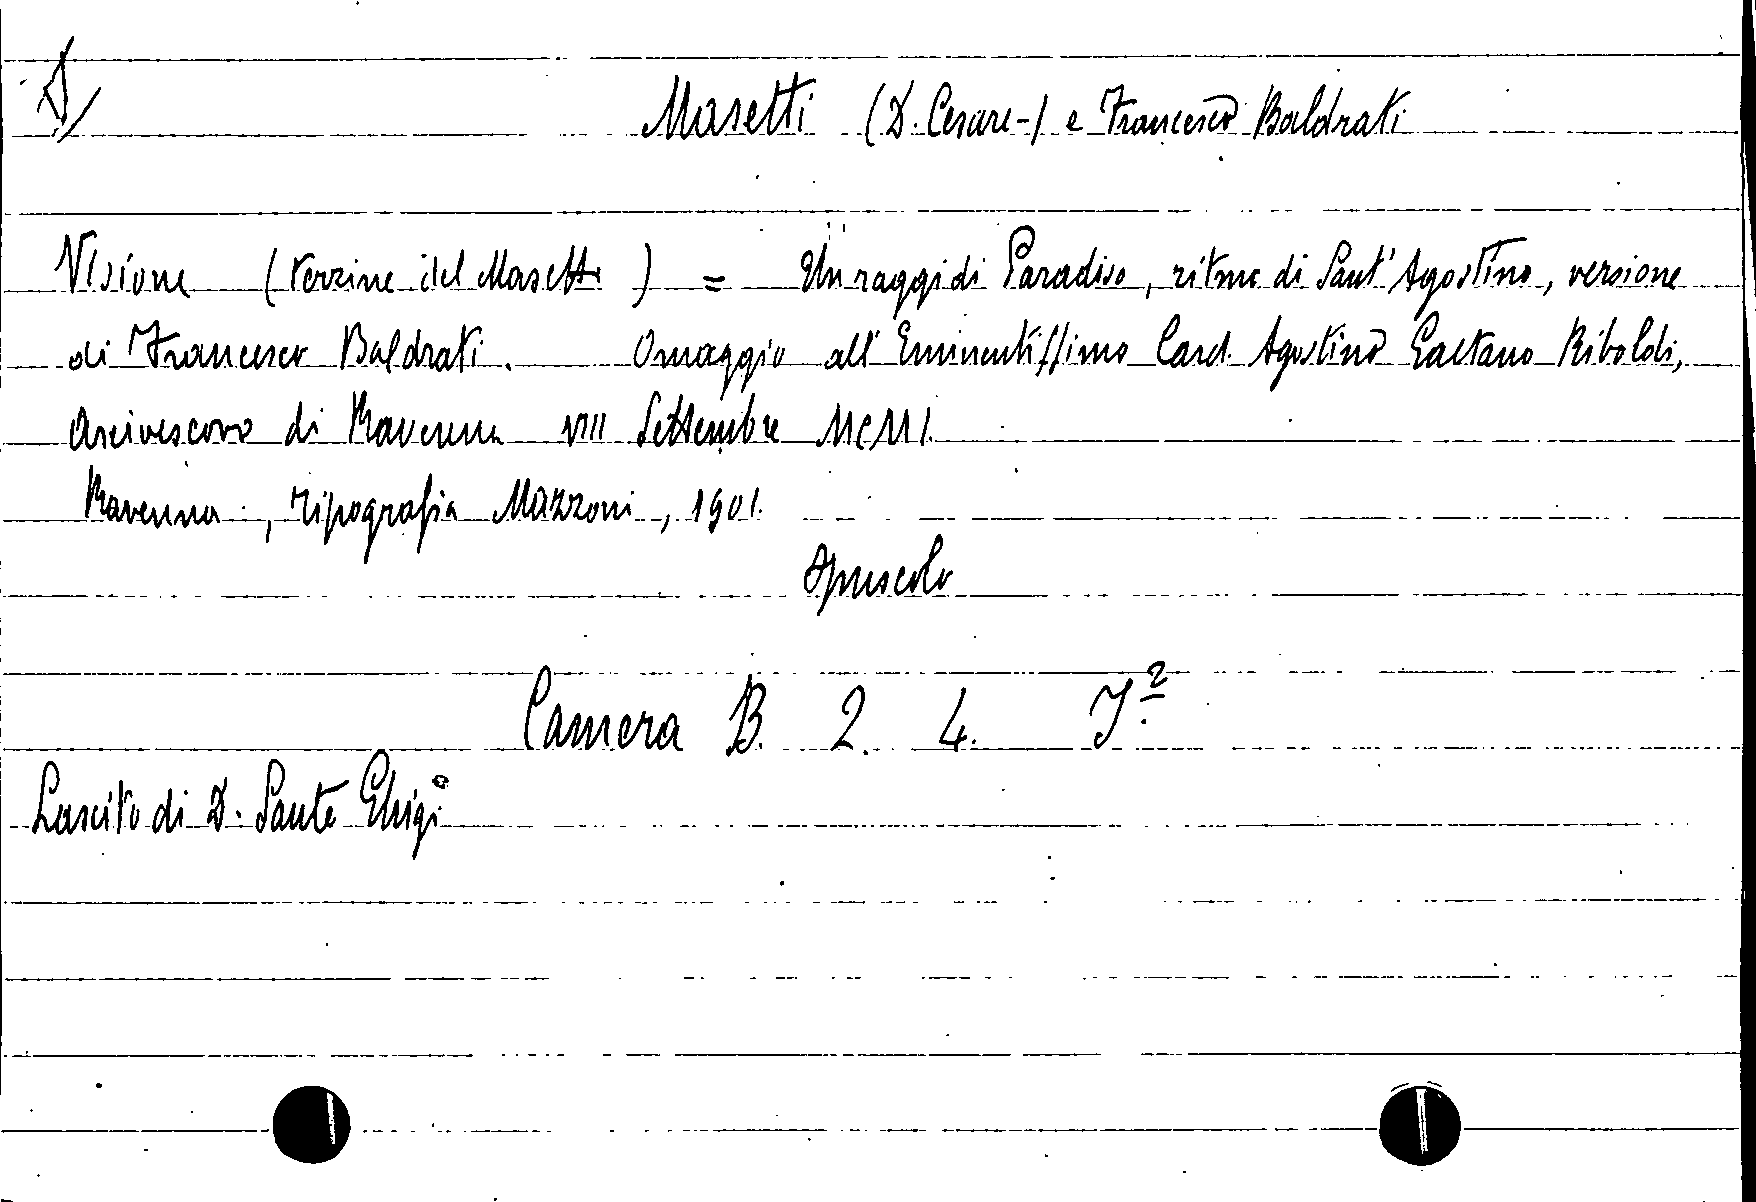 Masetti (D. Cesare-) e Francesco Baldrati
Visione (Terzine del Masetti) = Un raggi di Paradiso, ritmo di Sant' Agostino, versione
di Francesco Baldrati. Omaggio all' Eminentissimo Card. Agostino Gaetano Riboldi,
Arcivescovo di Ravenna VIII Settembre MCMI.
Ravenna, Tipografia Mazzoni, 1901.
Opuscolo
Camera B. 2. 4. J²
Lascito di D. Sante Ghigi